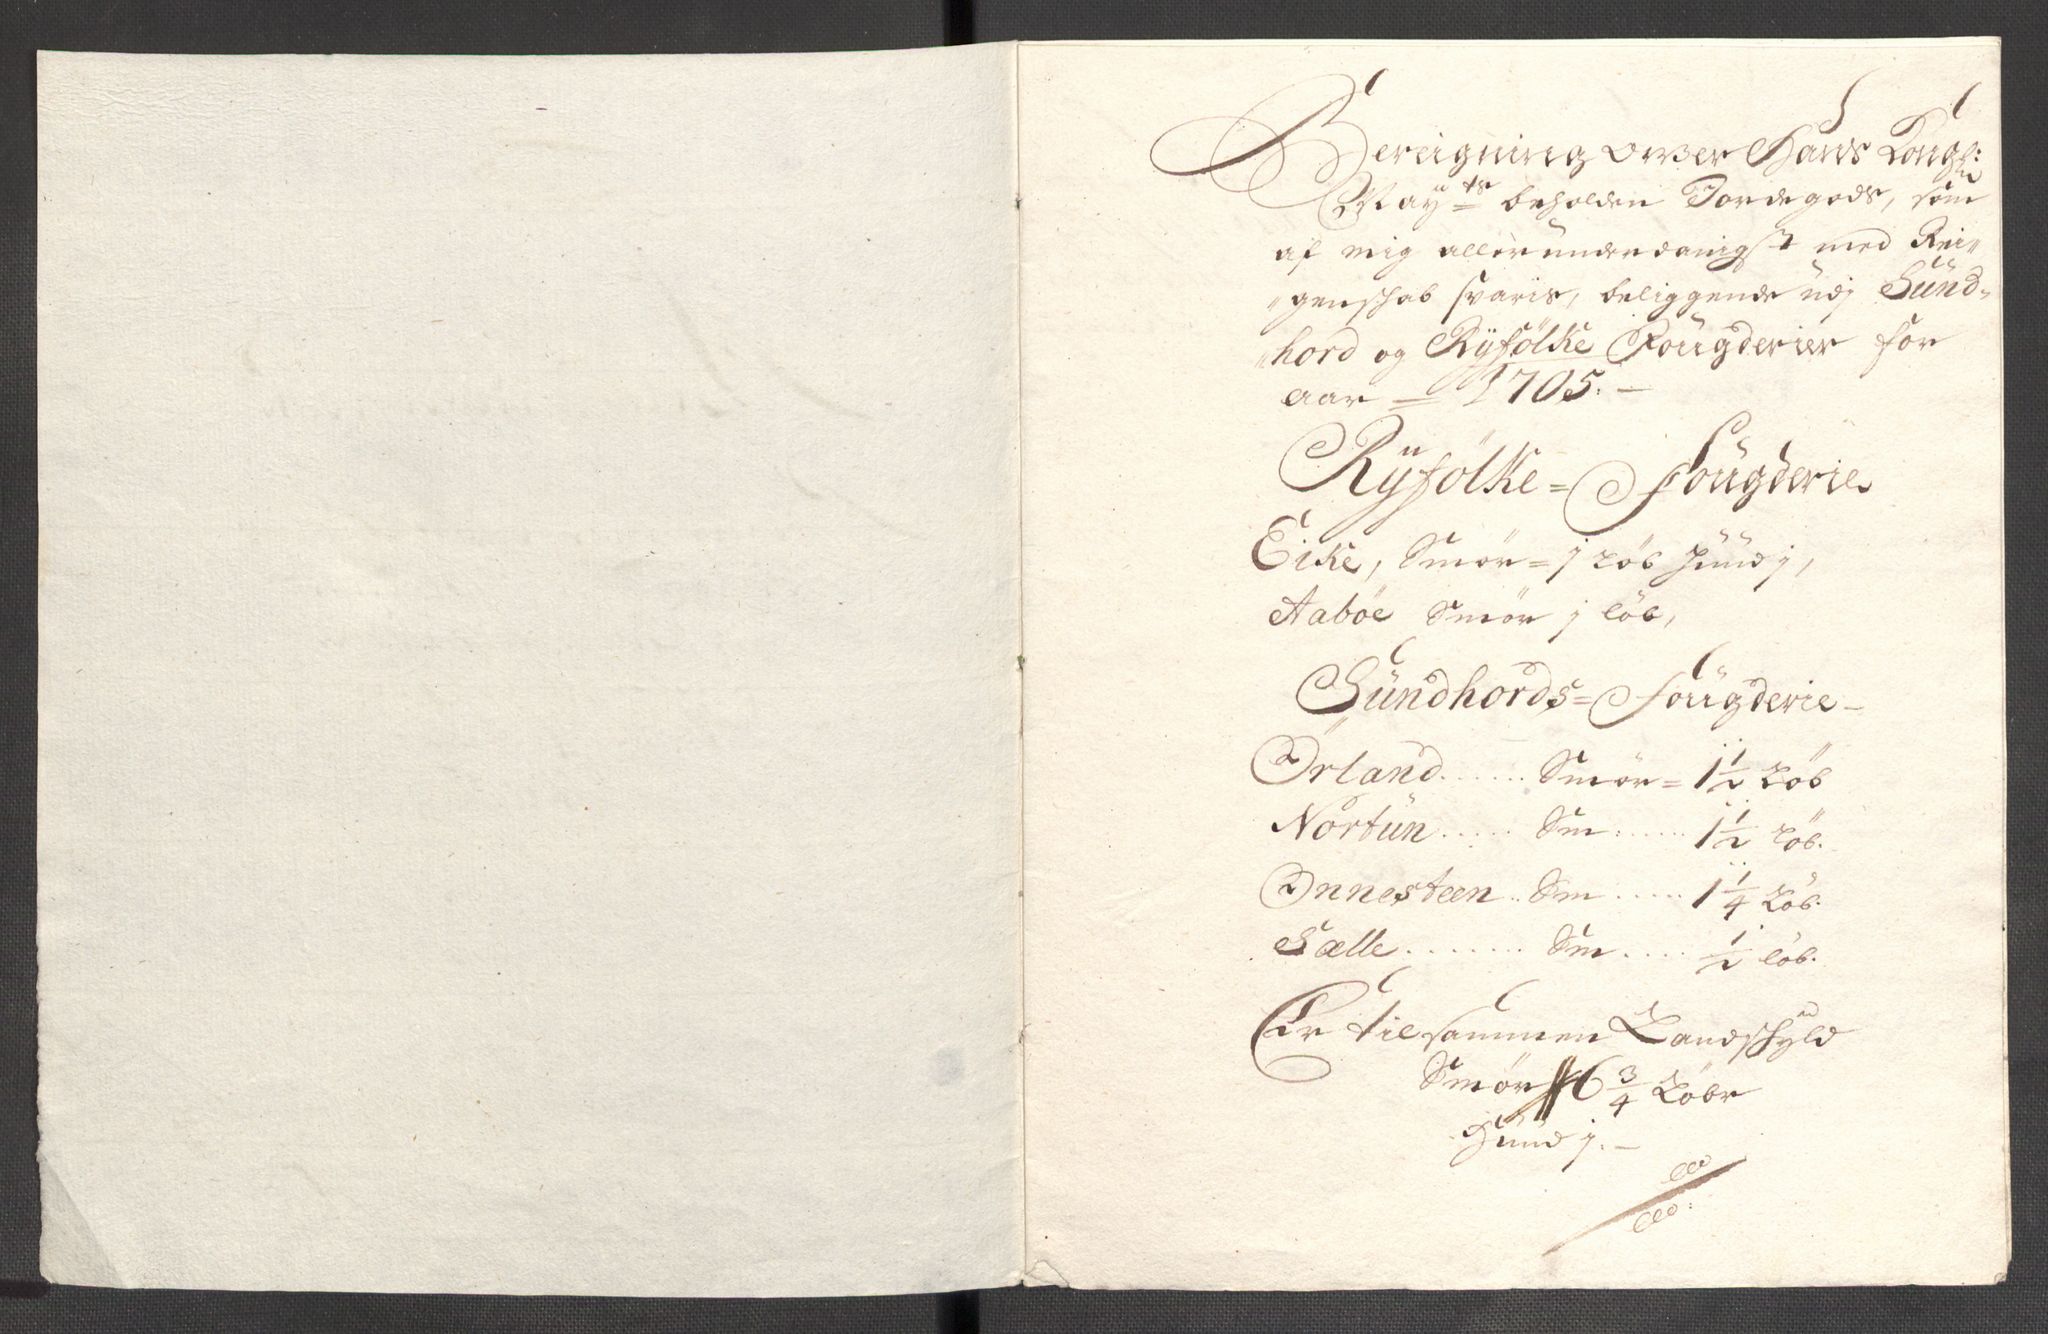 Bereigning over Hans Kongl:
May:ts beholden Jordegods, som
af mig allerunderdanigst med Rei„
„genschab svaris, beliggende udj Sünd„
„hord og Ryfölke Fougderier for
aar = 1705. –
Ryfölke = Fougderie
Eike, Smör = j Löb Huud j,
Aaböe Smör j löb,
Sündhords = Fougderie –
Örland ...... Smör = 1½ Löb
Nortün ..... Sm ..... 1½ Löb.
Önnesteen .. Sm ..... 1¼ Löb.
Sælle ....... Sm .... ½ löb.
Er tilsammen Landschyld
Smör 6¾ Löbe
Huud j. –